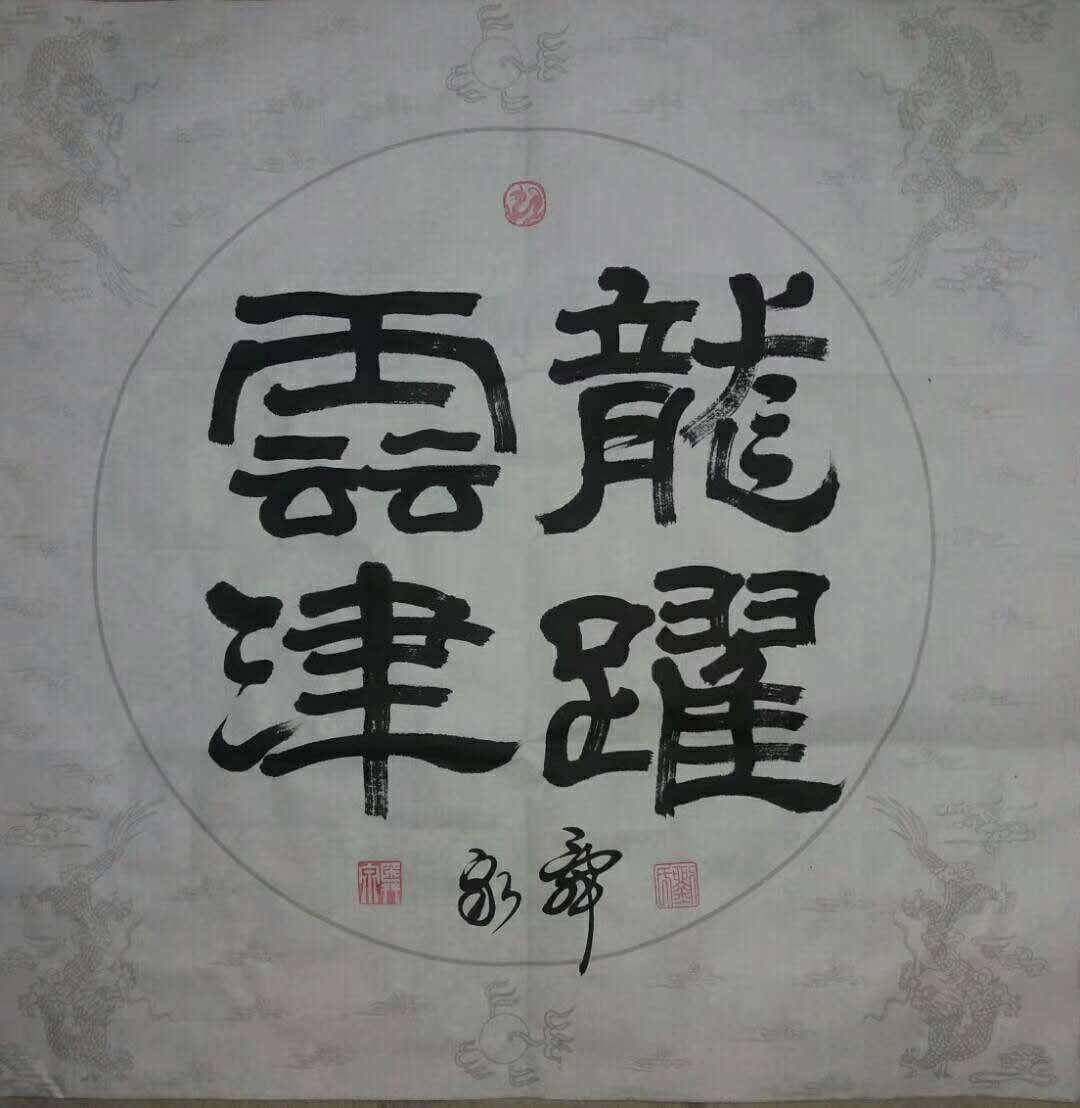 龍躍
雲津